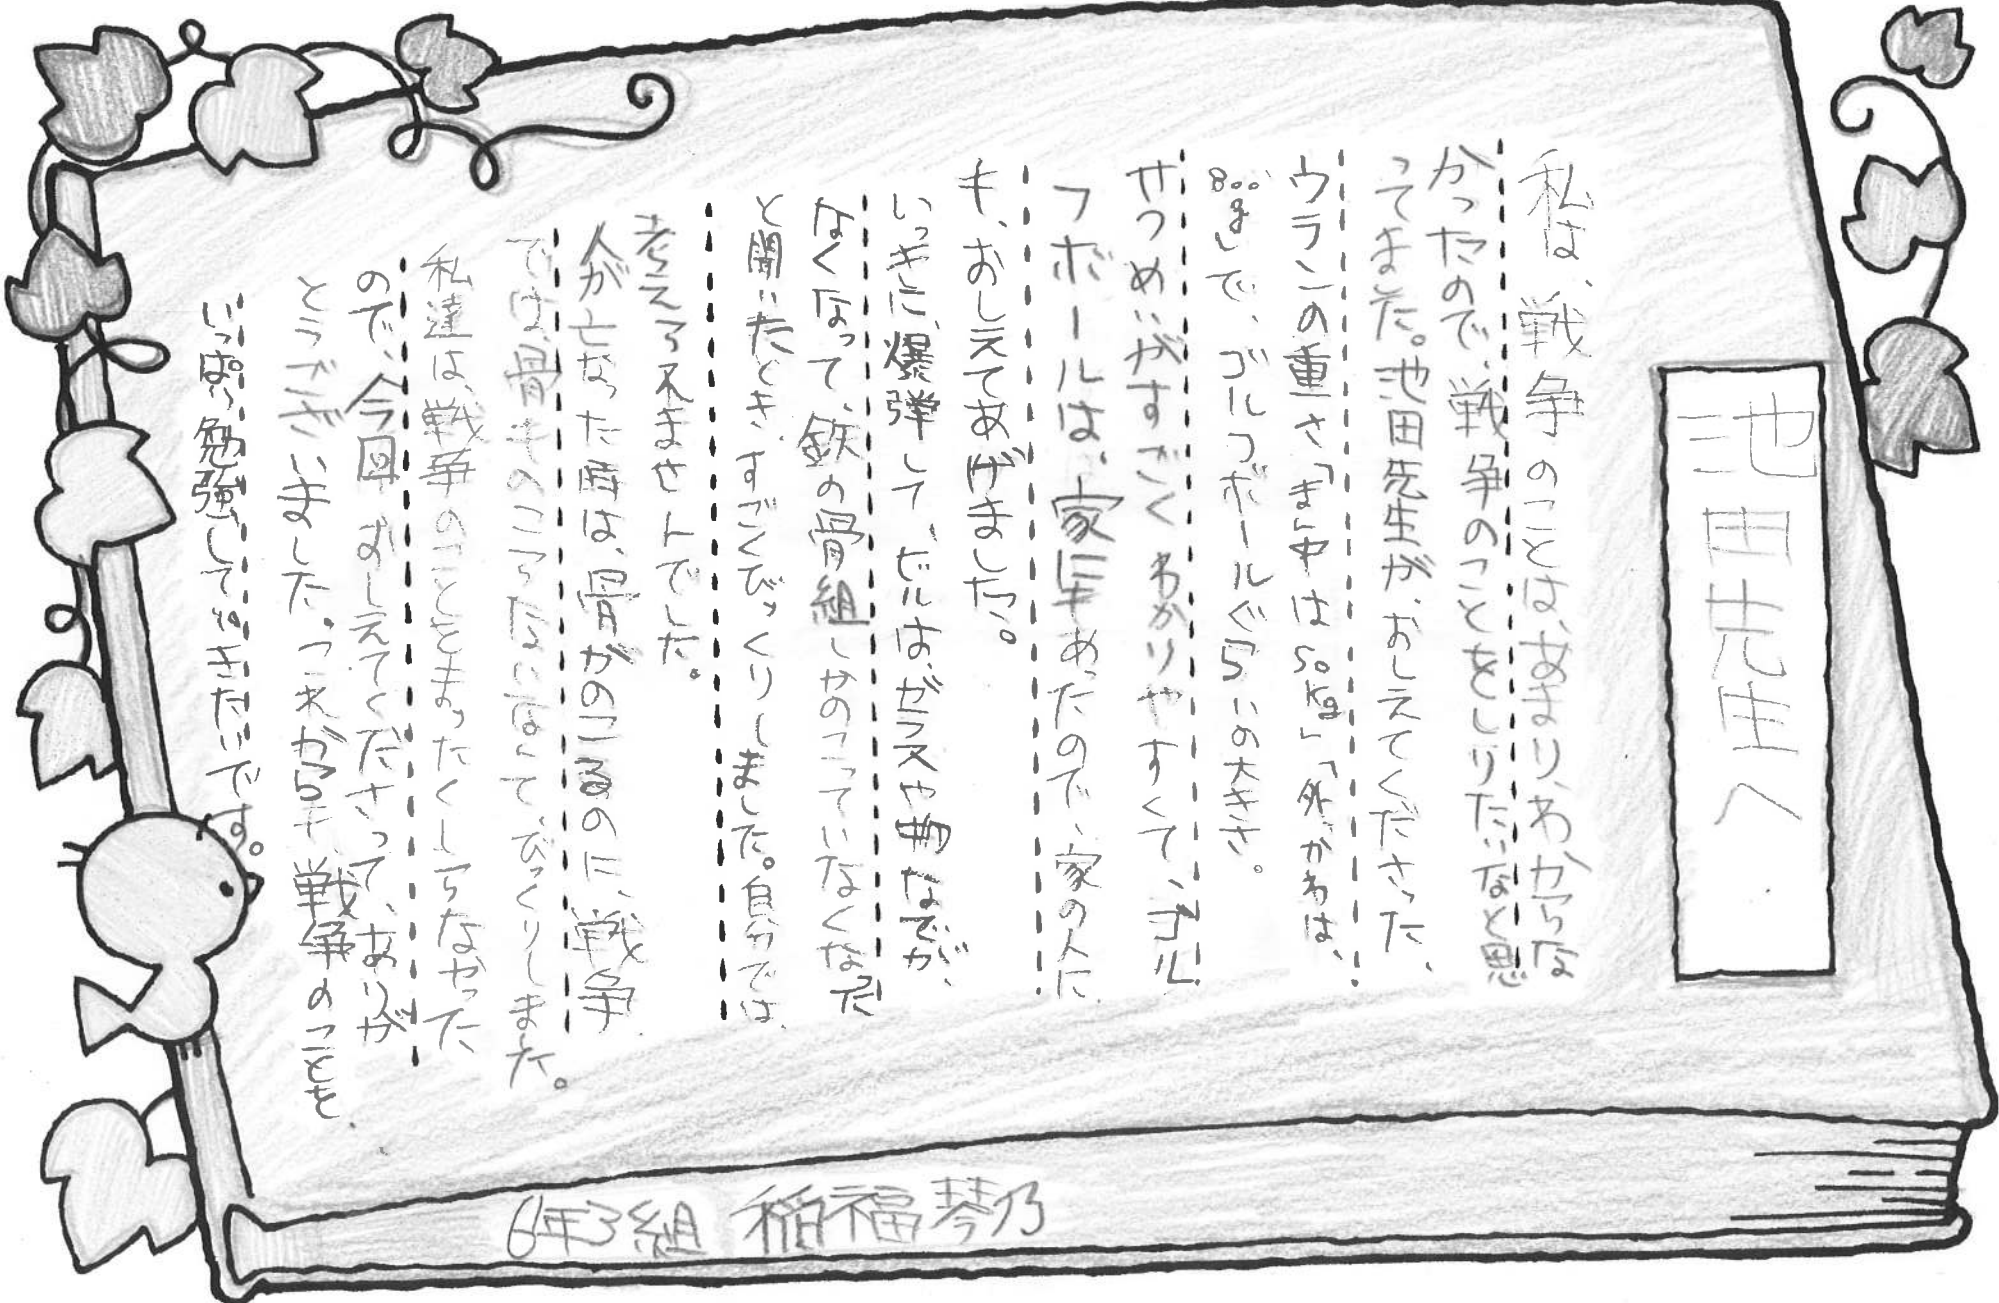 池田先生へ
私は、戦争のことは、あまり、わからな
かったので、戦争のことをしりたいなと思
ってました。池田先生が、おしえてくださった、
ウランの重さ「まん中は50kg」「外がわは、
800g」で、ゴルフボールぐらいの大きさ。
せつめいがすごくわかりやすくて、ゴル
フボールは、家にもあったので、家の人に
も、おしえてあげました。
いっきに、爆弾して、ビルは、ガラスや物などが、
なくなって、鉄の骨組しかのこっていなくなった
と聞いたとき、すごくびっくりしました。自分では、
考えられませんでした。
人が亡なった時は、骨がのこるのに、戦争
では、骨ものこらないなくて、びっくりしました。
私達は、戦争のことをまったくしらなかった
ので、今回、おしえてくださって、ありが
とうございました。これからも、戦争のことを
いっぱい勉強していきたいです。
6年3組 稲福琴乃